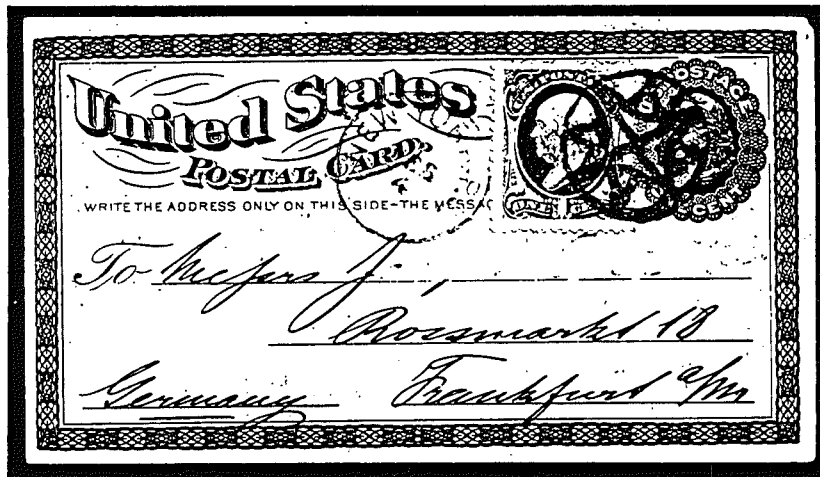 United States
POSTAL CARD.
WRITE THE ADDRESS ONLY ON THIS SIDE-THE MESSAG
POSTAGE
CENT
NEW YORK
To Messrs J.
Rossmarkt 18
Germany Frankfurt a/m